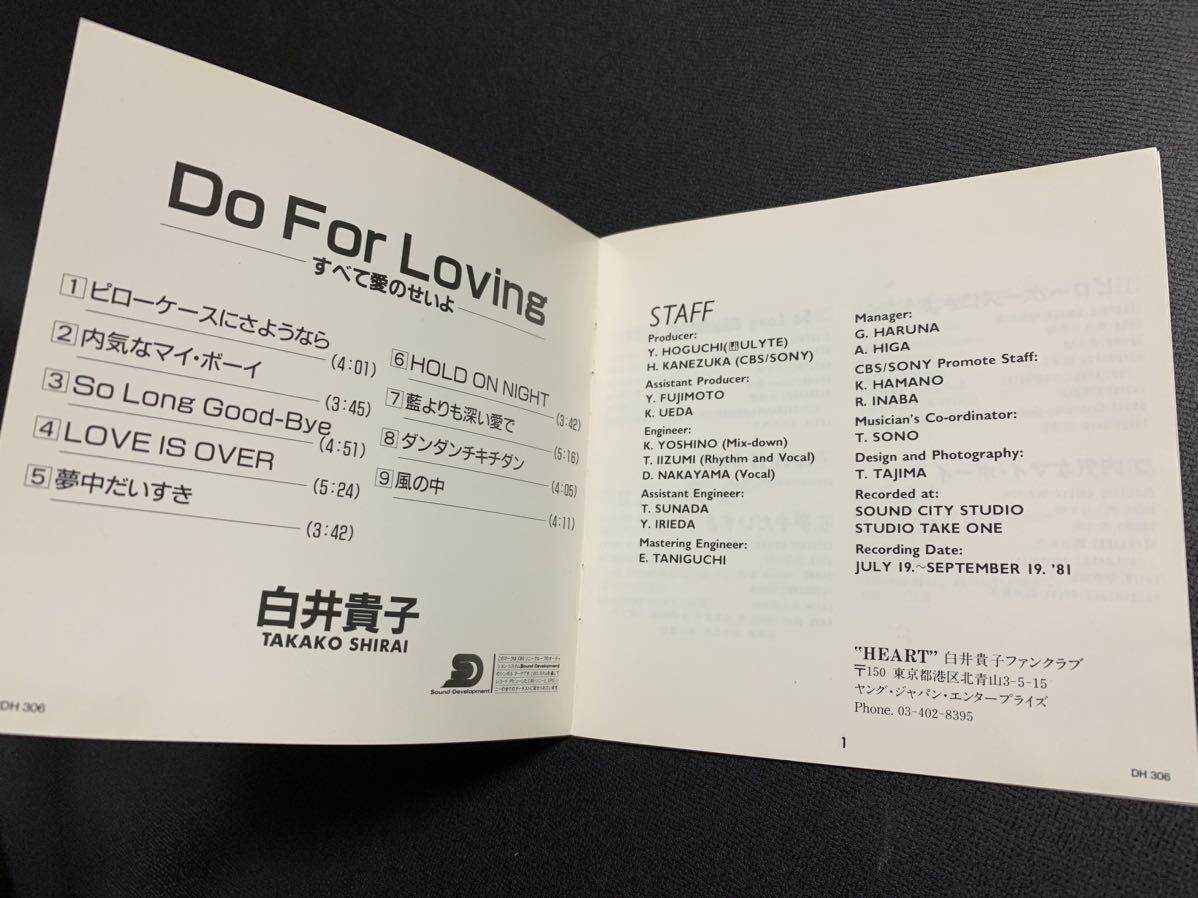 Do For Loving
すべて愛のせいよ
1 ピローケースにさようなら (4:01)
2 内気なマイ・ボーイ (3:45)
3 So Long Good-Bye (4:51)
4 LOVE IS OVER (5:24)
5 夢中だいすき (3:42)
6 HOLD ON NIGHT (3:42)
7 藍よりも深い愛で (5:16)
8 ダンダンチキチダン (4:05)
9 風の中 (4:11)
白井貴子
TAKAKO SHIRAI
SD
Sound Development
DH 306
STAFF
Producer:
Y. HOGUCHI(ULYTE)
H. KANEZUKA (CBS/SONY)
Assistant Producer:
Y. FUJIMOTO
K. UEDA
Engineer:
K. YOSHINO (Mix-down)
T. IIZUMI (Rhythm and Vocal)
D. NAKAYAMA (Vocal)
Assistant Engineer:
T. SUNADA
Y. IRIEDA
Mastering Engineer:
E. TANIGUCHI
Manager:
G. HARUNA
A. HIGA
CBS/SONY Promote Staff:
K. HAMANO
R. INABA
Musician's Co-ordinator:
T. SONO
Design and Photography:
T. TAJIMA
Recorded at:
SOUND CITY STUDIO
STUDIO TAKE ONE
Recording Date:
JULY 19.~SEPTEMBER 19. '81
"HEART" 白井貴子ファンクラブ
〒150 東京都港区北青山3-5-15
ヤング・ジャパン・エンタープライズ
Phone. 03-402-8395
1
DH 306